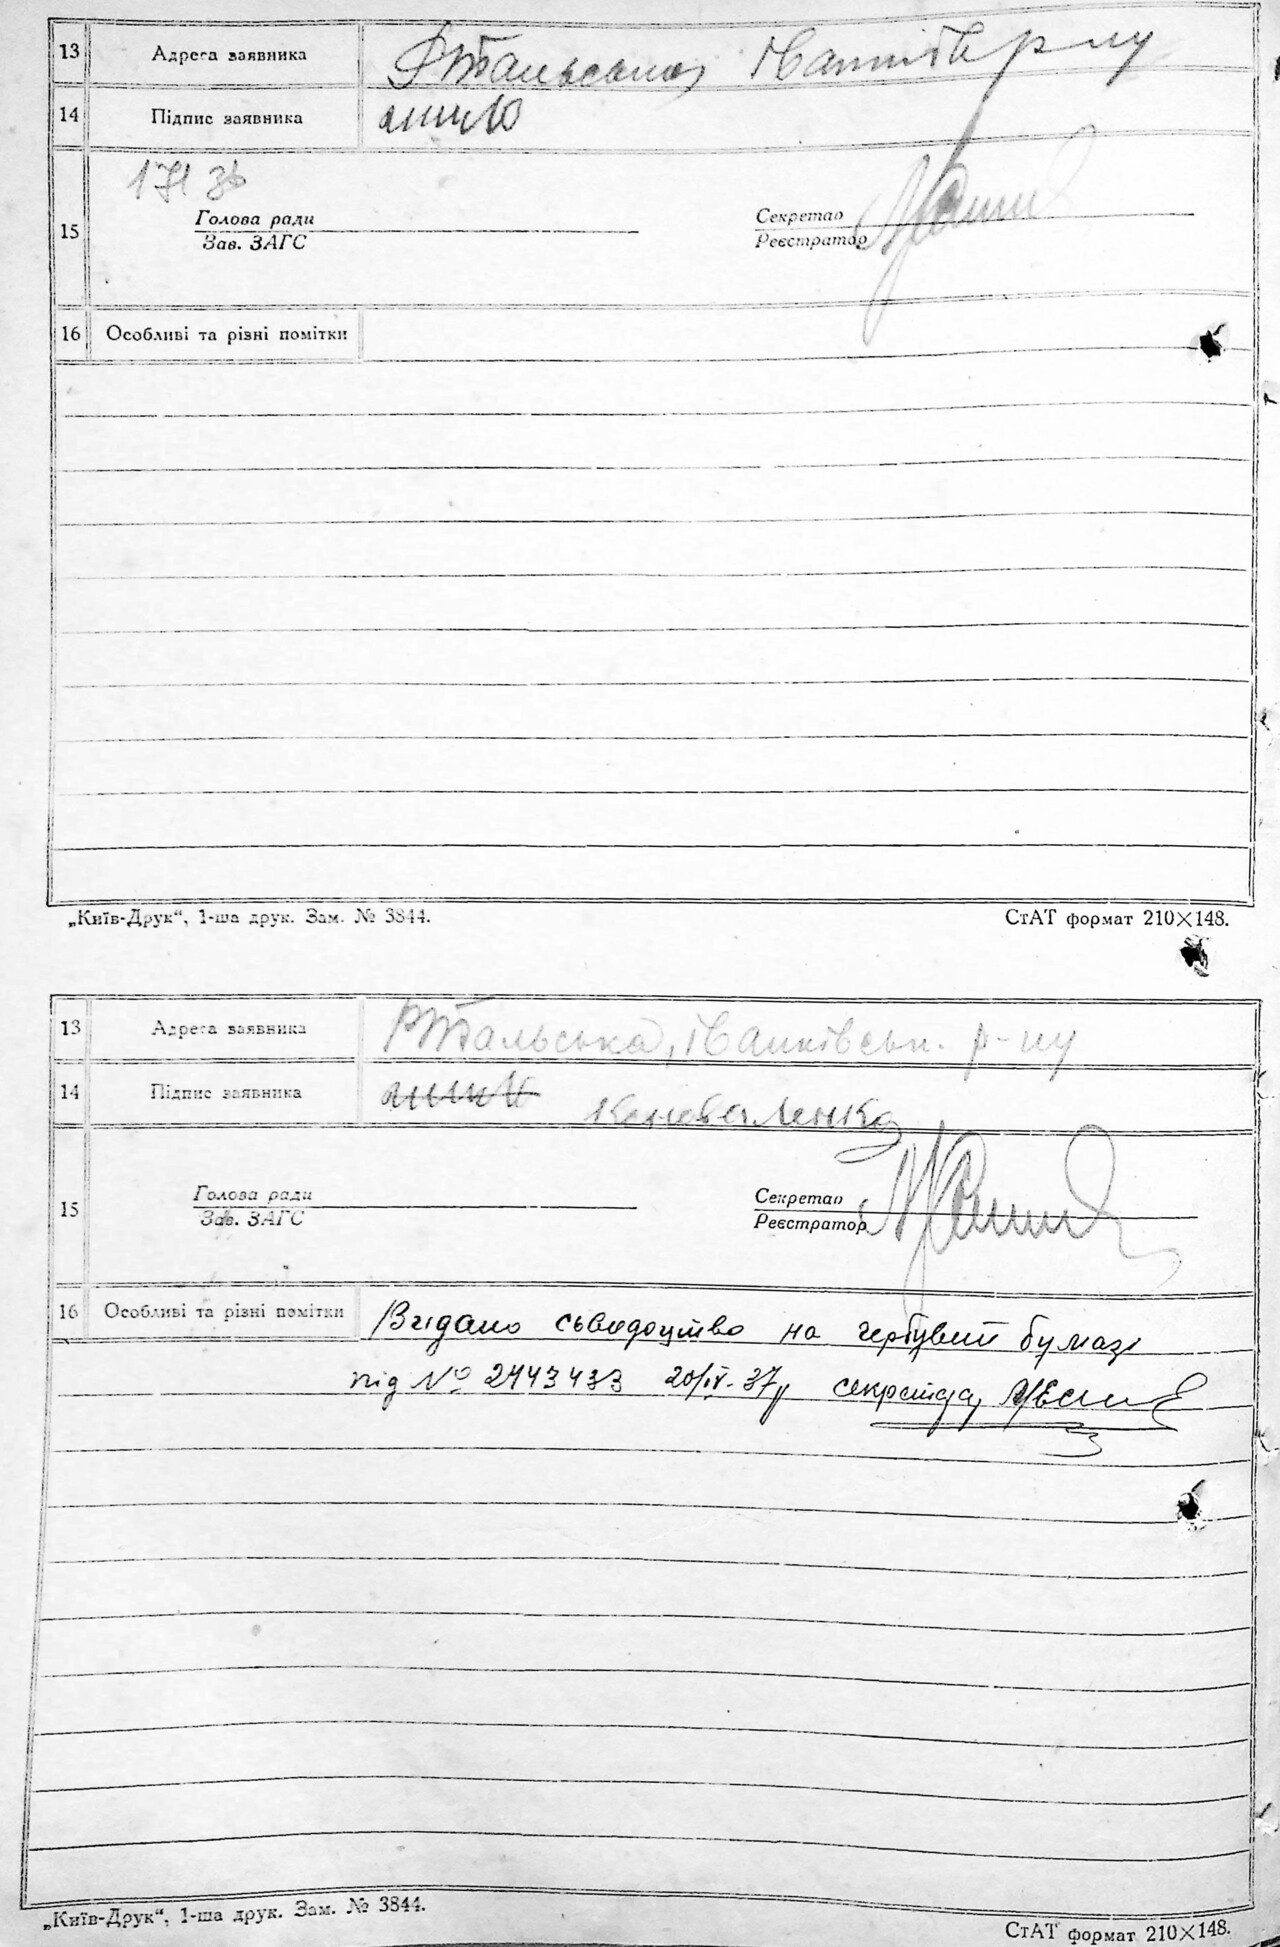 13 Адреса заявника Жтальська Іванків р-ну
14 Підпис заявника
15 Голова ради Секретар
Зав. ЗАГС Реєстратор
16 Особливі та різні помітки
„Київ-Друк“, 1-ша друк. Зам. № 3844. СтАТ формат 210×148.
13 Адреса заявника тальська, Іванківськ. р-ну
14 Підпис заявника Коноваленко
15 Голова ради Секретар
Зав. ЗАГС Реєстратор
16 Особливі та різні помітки Видано сьвидоцтво на гербувий бумазі
під № 2443433 20/IV-37р секретар
„Київ-Друк“, 1-ша друк. Зам. № 3844. СтАТ формат 210×148.